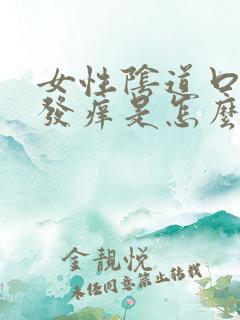 女性陰道口
發痒是怎麼
金靚悅
未经同意禁止转载